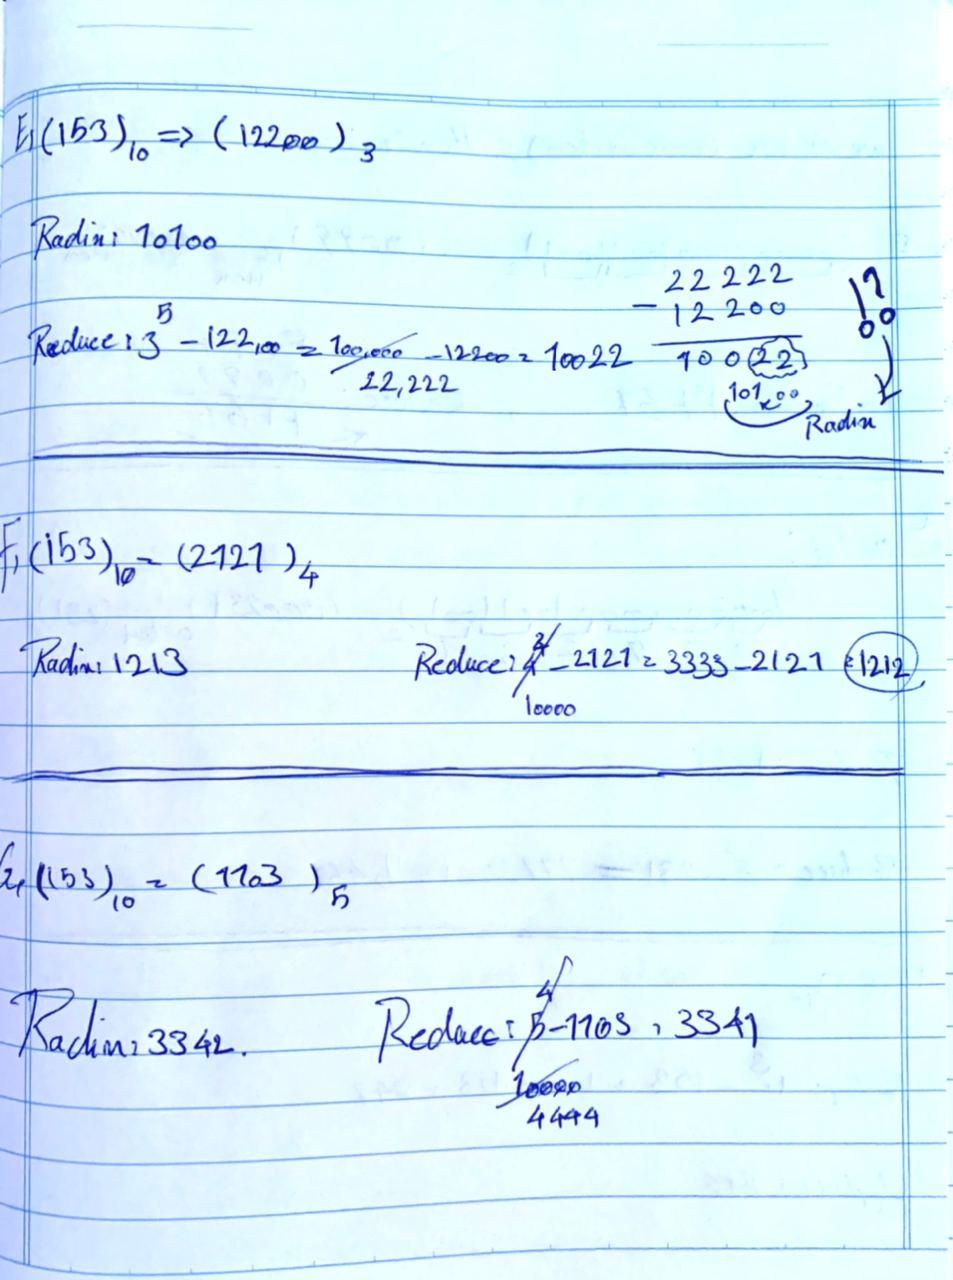 E, (153)10 => (12200)3
Radix: 10100
22 222
- 12 200
!?
Reduce: 3^5 - 122,00 = 100,000 - 12200 = 10022
22,222
10022
10100
Radix
F, (153)10 = (2121)4
Radix: 1213
Reduce: 4^4 - 2121 = 3333 - 2121 = 1212
10000
G, (153)10 = (1103)5
Radix: 3342.
Reduce: 5^4 - 1103 = 3341
10000
4444